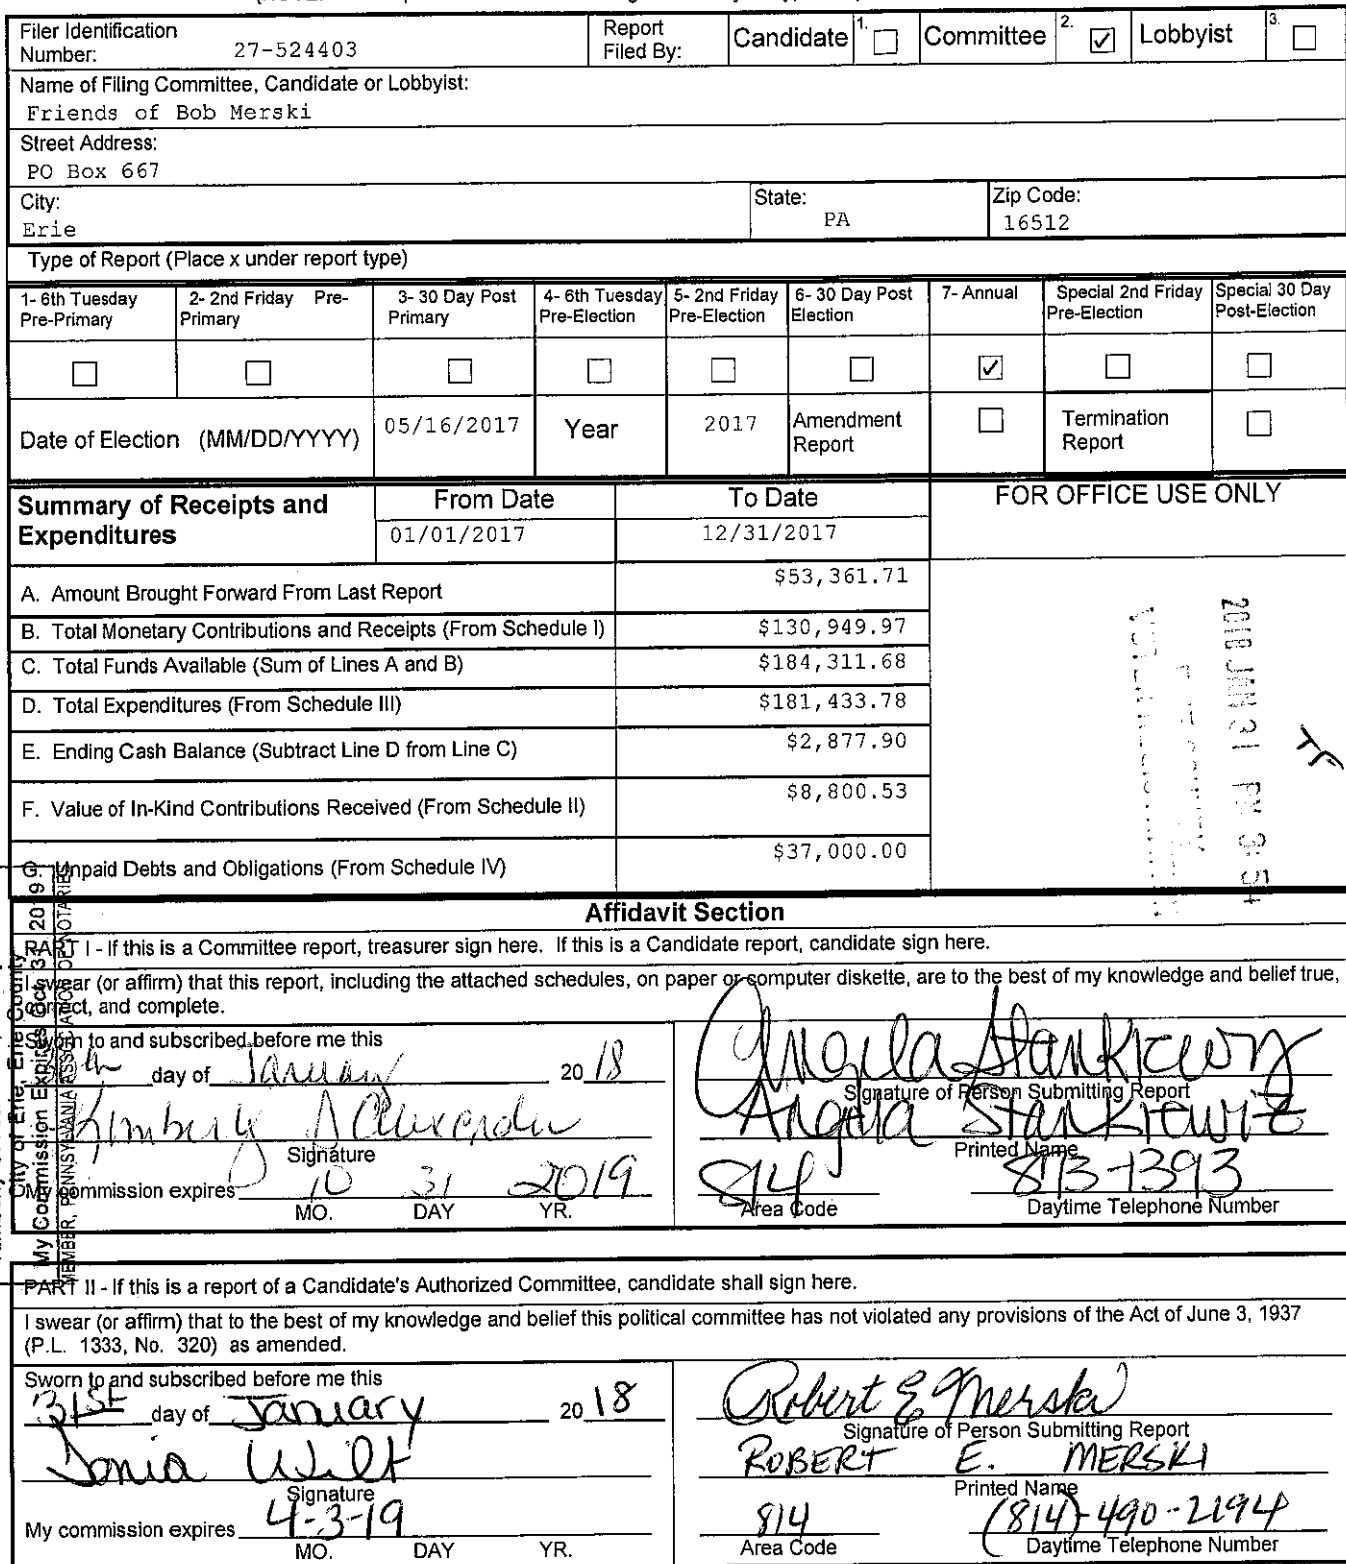 Filer Identification Number: 27-524403 Report Filed By: Candidate 1. ☐ Committee 2. ☑ Lobbyist 3. ☐
Name of Filing Committee, Candidate or Lobbyist:
Friends of Bob Merski
Street Address:
PO Box 667
City: State: Zip Code:
Erie PA 16512
Type of Report (Place x under report type)
1- 6th Tuesday Pre-Primary 2- 2nd Friday Pre-Primary 3- 30 Day Post Primary 4- 6th Tuesday Pre-Election 5- 2nd Friday Pre-Election 6- 30 Day Post Election 7- Annual Special 2nd Friday Pre-Election Special 30 Day Post-Election
☐ ☐ ☐ ☐ ☐ ☐ ☑ ☐ ☐
Date of Election (MM/DD/YYYY) 05/16/2017 Year 2017 Amendment Report ☐ Termination Report ☐
Summary of Receipts and Expenditures From Date To Date FOR OFFICE USE ONLY
01/01/2017 12/31/2017
A. Amount Brought Forward From Last Report $53,361.71
B. Total Monetary Contributions and Receipts (From Schedule I) $130,949.97
C. Total Funds Available (Sum of Lines A and B) $184,311.68
D. Total Expenditures (From Schedule III) $181,433.78
E. Ending Cash Balance (Subtract Line D from Line C) $2,877.90
F. Value of In-Kind Contributions Received (From Schedule II) $8,800.53
G. Unpaid Debts and Obligations (From Schedule IV) $37,000.00
2018 JAN 31 PM 3:54
Affidavit Section
PART I - If this is a Committee report, treasurer sign here. If this is a Candidate report, candidate sign here.
I swear (or affirm) that this report, including the attached schedules, on paper or computer diskette, are to the best of my knowledge and belief true,
correct, and complete.
Sworn to and subscribed before me this
day of January 2018
Angela Stankiewicz
Signature of Person Submitting Report
Kimberly A Alexander
Signature
Angela Stankiewitz
Printed Name
My commission expires 10 31 2019
MO. DAY YR.
814 873-1393
Area Code Daytime Telephone Number
City of Erie, Erie County
My Commission Expires Oct. 31, 2019
MEMBER, PENNSYLVANIA ASSOCIATION OF NOTARIES
PART II - If this is a report of a Candidate's Authorized Committee, candidate shall sign here.
I swear (or affirm) that to the best of my knowledge and belief this political committee has not violated any provisions of the Act of June 3, 1937
(P.L. 1333, No. 320) as amended.
Sworn to and subscribed before me this
31st day of January 2018
Robert E Merski
Signature of Person Submitting Report
Sonia Wilt
Signature
ROBERT E. MERSKI
Printed Name
My commission expires 4-3-19
MO. DAY YR.
814 (814)-490-2194
Area Code Daytime Telephone Number